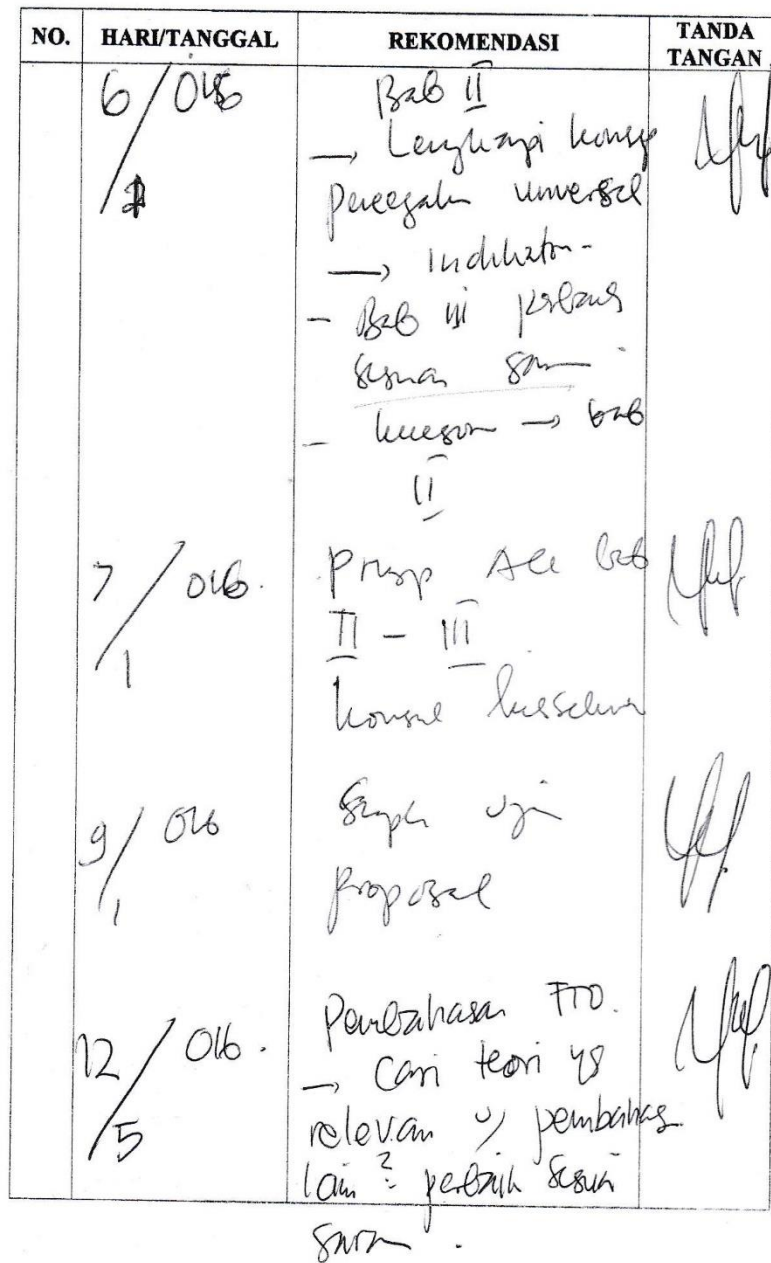 NO. HARI/TANGGAL REKOMENDASI TANDA TANGAN
6/1 016 Bab II
→ Lengkapi konsep
pencegahan universal
→ Indikator -
- Bab III perbaiki
sesuai saran
- kuesioner → bab
II
7/1 016. Prinsp Acc bab
II - III
konsul
9/1 016 uji
proposal
12/5 016. Pembahasan
→ Cari teori yg
relevan u/ pembahas
lain² perbaiki sesuai
saran.